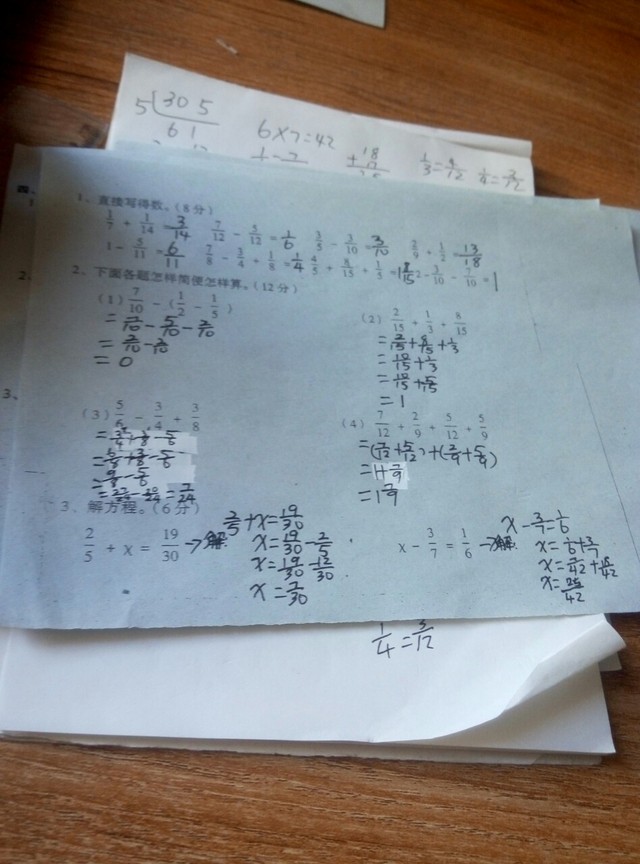 5 30 5
6 1
6×7=42
1/3=4/12
四、
1、直接写得数。(8分)
1/7 + 1/14 = 3/14 7/12 - 5/12 = 1/6 3/5 - 3/10 = 3/10 2/9 + 1/2 = 13/18
1 - 5/11 = 6/11 7/8 - 3/4 + 1/8 = 1/4 4/5 + 8/15 + 1/5 = 1 8/15 2 - 3/10 - 7/10 = 1
2、下面各题怎样简便怎样算。(12分)
(1) 7/10 - (1/2 - 1/5)
= 7/10 - 5/10 - 2/10
= 2/10 - 2/10
= 0
(2) 2/15 + 1/3 + 8/15
= 2/15 + 8/15 + 1/3
= 10/15 + 1/3
= 10/15 + 5/15
= 1
(3) 5/6 - 3/4 + 3/8
(4) 7/12 + 2/9 + 5/12 + 5/9
= (7/12 + 5/12) + (2/9 + 5/9)
= 1 + 7/9
= 1 7/9
3、解方程。(6分)
2/5 + x = 19/30 →解 2/5 + x = 19/30
x = 19/30 - 2/5
x = 19/30 - 12/30
x = 7/30
x - 3/7 = 1/6 →解 x - 3/7 = 1/6
x = 1/6 + 3/7
x = 7/42 + 18/42
x = 25/42
1/4 = 3/12